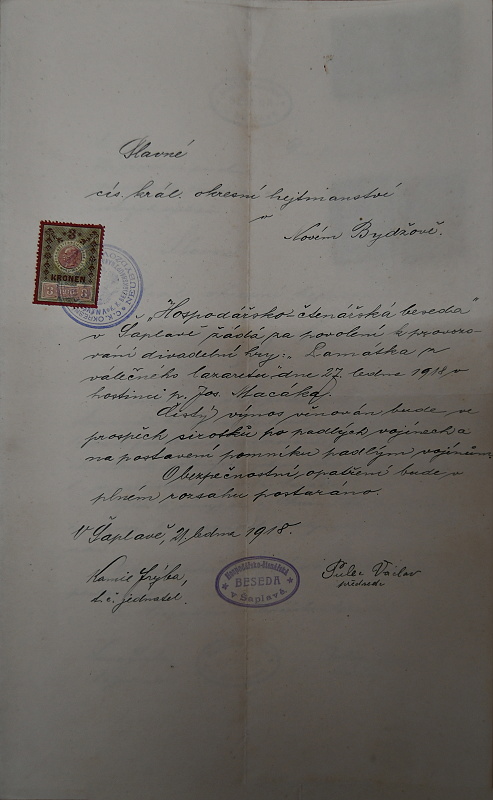 Slavné
cís. král. okresní hejtmanství
v
Novém Bydžově.
3
KRONEN
„Hospodářsko-čtenářská beseda"
v Šaplavě žádá za povolení k provozo-
vání divadelní hry: „Památka z
válečného lazaretu" dne 27. ledna 1918 v
hostinci p. Jos. Macáka.
Čistý výnos věnován bude ve
prospěch sirotků po padlých vojínech a
na postavení pomníku padlým vojínům.
O bezpečnostní opatření bude v
plném rozsahu postaráno.
V Šaplavě, 21. ledna 1918.
BESEDA
v Šaplavě.
t. č. jednatel.
Václav
předseda